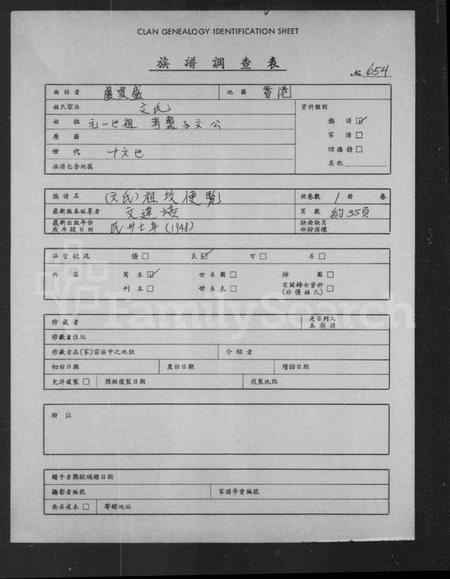 CLAN GENEALOGY IDENTIFICATION SHEET
族譜調查表
No. 654
面訪者 盧眾盛 地區 香港
姓氏宗派 文氏 資料類別
始祖 元一世祖 族譜 ☑
原籍 家譜 □
世代 十六世 功德榜 □
族譜包含地區 其他
族譜名 (文氏)祖坟便覧 冊卷數 1 冊 卷
最新版本編纂者 文達 頁數 約35頁
最新出版年份 缺冊缺頁
或手鈔日期 民卅七年 (1948) 部份損壞
保管狀況 優 □ 良 ☑ 可 □ 劣 □
內容 寫本 ☑ 世系圖 □ 掃圖 □
刊本 □ 世系表 □ 有關婦女資料 □
(非僅姓氏)
FamilySearch
珍藏者 是否列入
本族譜
珍藏者住址
珍藏者在(家)宗族中之地位 介紹者
初訪日期 處訪日期 續訪日期
允許複製 □ 預組複製日期 複製地點
附註
贈予者獎狀頒贈日期
攝影者編號 家譜學會編號
要求複本 □ 寄贈地址